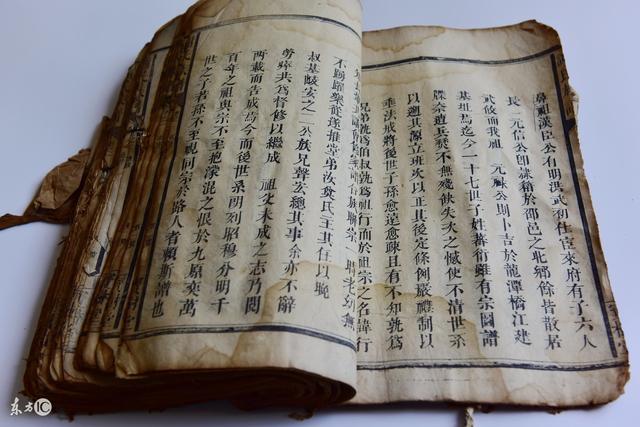 鼻祖漢臣公有明洪武初仕宦來府有子六人
長 元信公卽隸籍於邵邑之北鄉餘皆散居
武攸而我祖 元祿公則卜吉於龍潭橋江建
基址焉迄今一十七世子姓蕃衍雖有宗圖譜
牒奈遭兵燹不無殘缺失火之憾使不清世系
以遡其源立班次以正其後定條例嚴禮制以
垂法戒將後世子孫愈遠愈疎且有不知孰爲
兄弟孰爲伯叔孰爲祖行而於祖宗之名諱行
族聯宗一時老幼無
不踴躍樂從遂推堂弟汝奐氏主其任以晚
叔基皦安之二公族兄聲玄總其事余亦不辭
勞瘁共爲督修以繼成 祖父未成之志乃閱
兩載而告成焉今而後世系明列昭穆分明千
百年之祖與宗不至抱濛混之恨於九原奕萬
世之子若孫不至視同宗於路人者賴斯譜也
东方IC